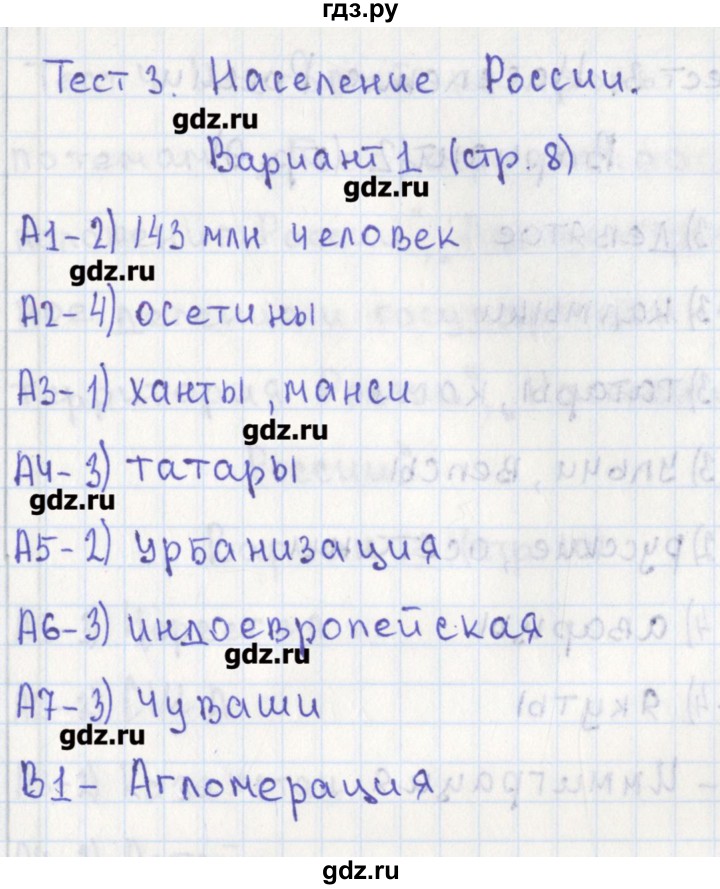 гдз.ру
Тест 3. Население России.
gdz.ru
Вариант 1 (стр. 8)
gdz.ru
А1-2) 143 млн человек
gdz.ru
А2-4) осетины
А3-1) ханты, манси
gdz.ru
А4-3) татары
gdz.ru
А5-2) урбанизация
А6-3) индоевропейская
gdz.ru
А7-3) Чуваши
gdz.ru
В1- Агломерация
gdz.ru